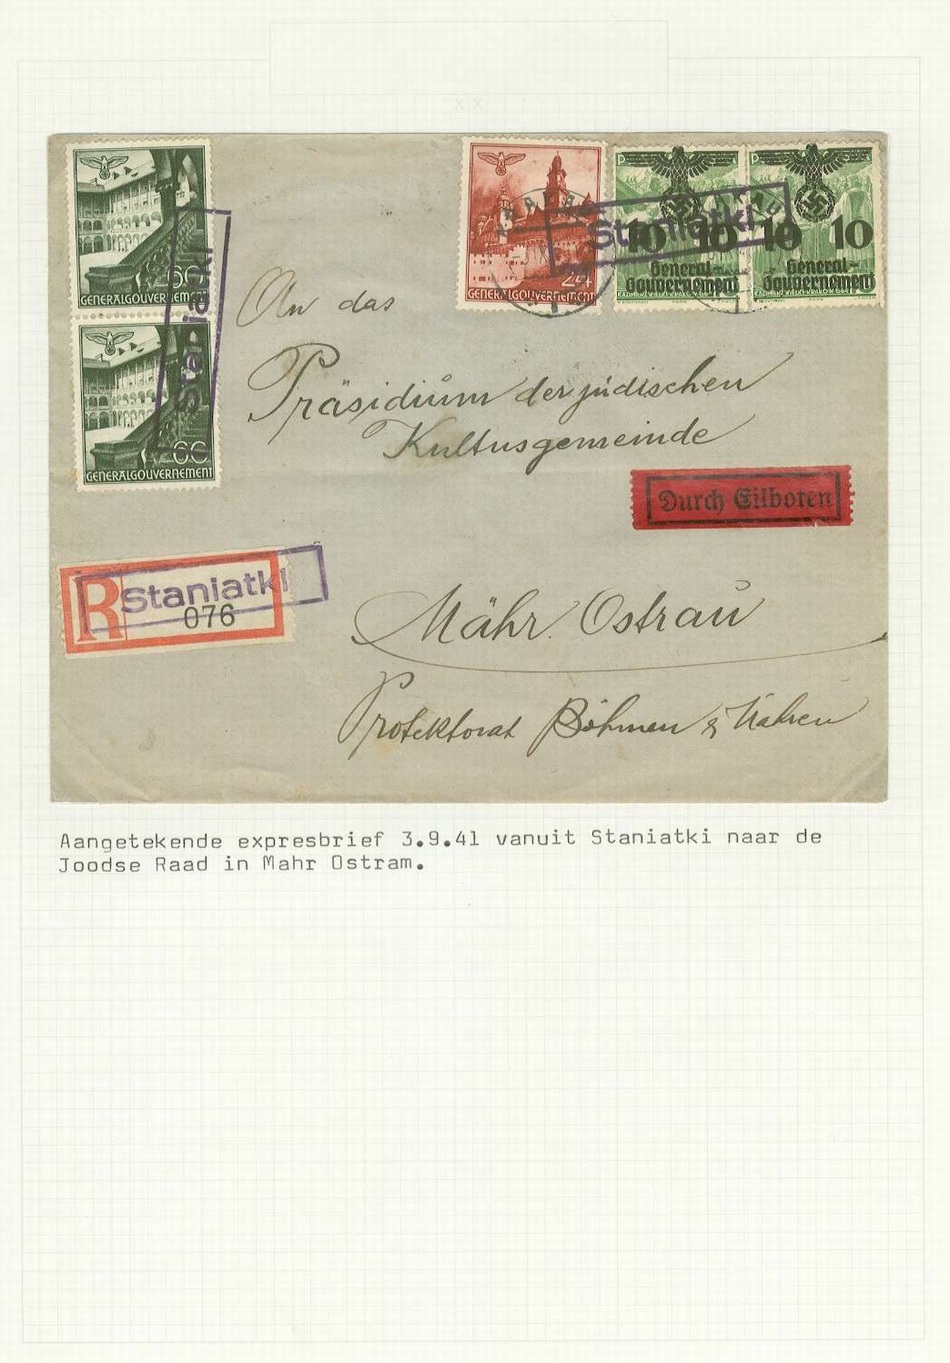 60
GENERALGOUVERNEMENT
60
GENERALGOUVERNEMENT
Staniatki
24
GENERALGOUVERNEMENT
KRAKAU
Staniatki
10 10
General-
Gouvernement
10 10
General-
Gouvernement
An das
Präsidium der jüdischen
Kultusgemeinde
Durch Eilboten
R
Staniatki
076
Mähr. Ostrau
Protektorat Böhmen & Mähren
Aangetekende expresbrief 3.9.41 vanuit Staniatki naar de
Joodse Raad in Mahr Ostram.